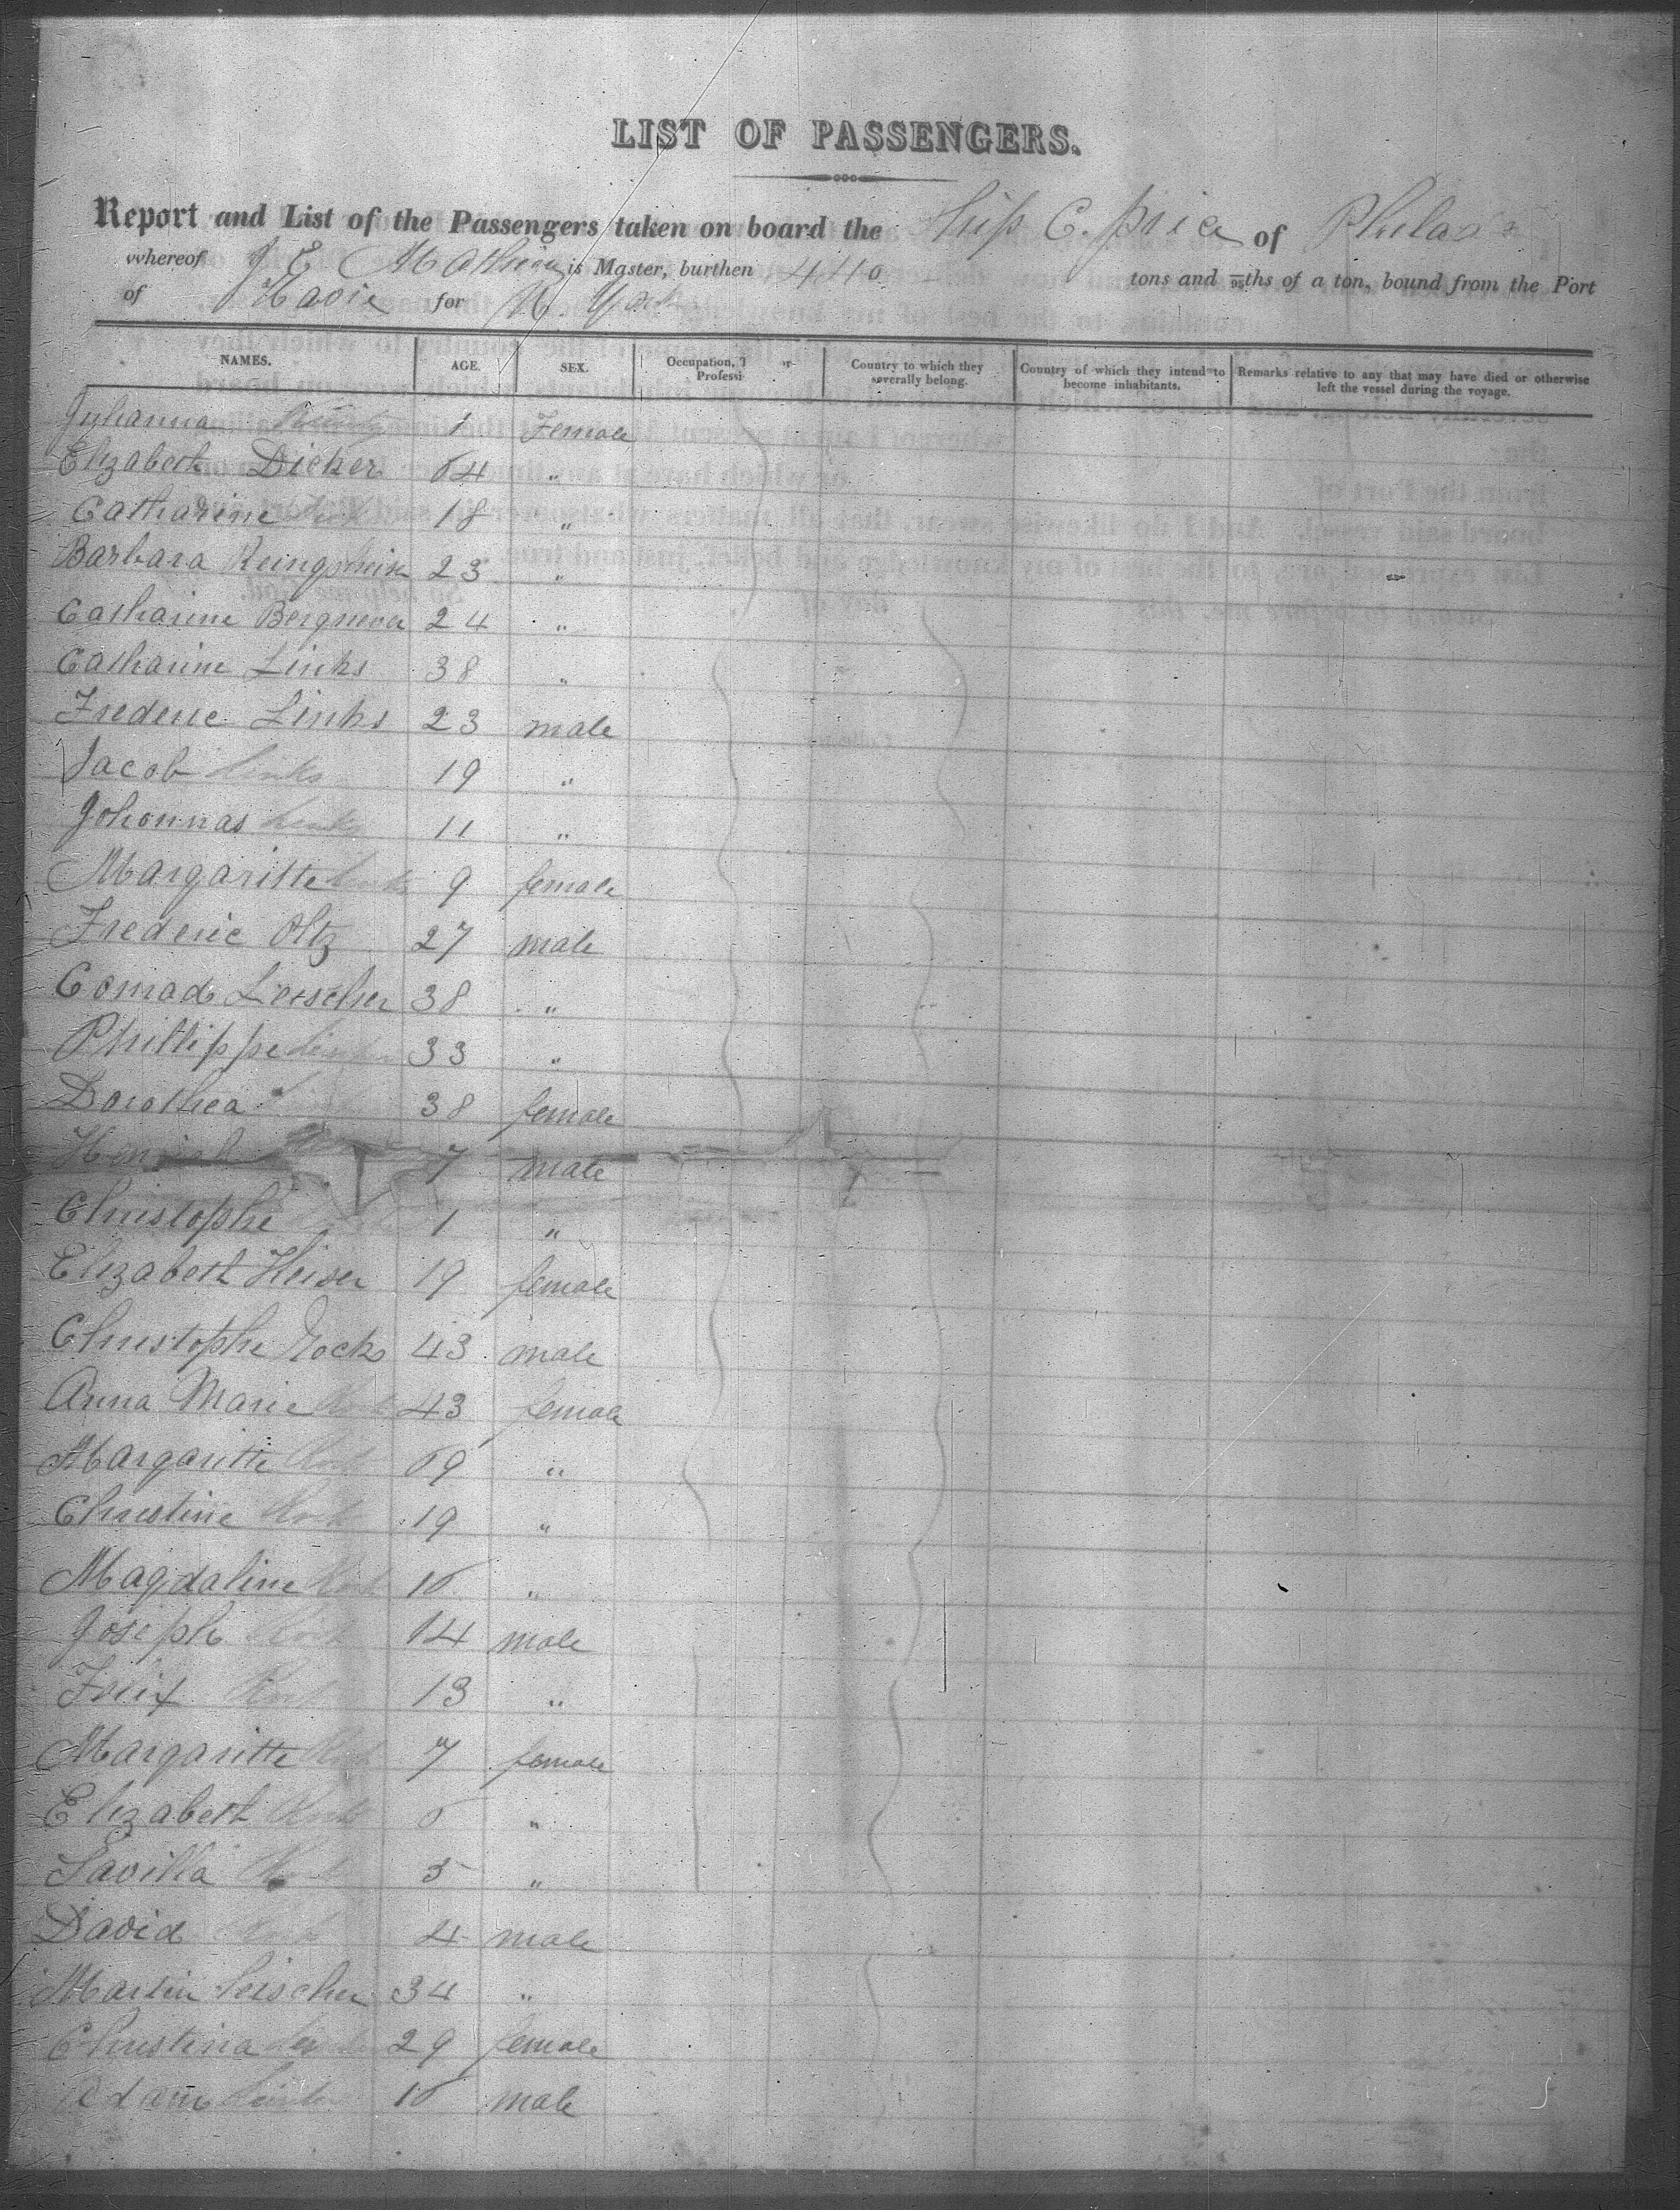 LIST OF PASSENGERS.
Report and List of the Passengers taken on board the Ship C. price of Philada
whereof J. E. Mathieu is Master, burthen 440 tons and 95ths of a ton, bound from the Port
of Havre for N. York
NAMES. AGE. SEX. Occupation, T or Professi Country to which they severally belong. Country of which they intend to become inhabitants. Remarks relative to any that may have died or otherwise left the vessel during the voyage.
1 Female
Elizabeth Dicker 54 "
Catharine 18 "
Barbara 23 "
Catharine 24 "
Catharine Links 38 "
Frederic Links 23 male
Jacob Links 19 "
Johonnas Links 11 "
Margaritte Links 9 female
Frederic Oltz 27 male
Conrad Leischer 38 "
Phillippe 33 "
Dorothea 38 female
7 male
Christophe 1 "
Elizabeth Heiser 19 female
Christophe Rock 43 male
Anna Marie Rock 43 female
Margaritte Rock 69 "
Christine Rock 19 "
Magdaline Rock "
Joseph Rock 14 male
Felix Rock 13 "
Margaritte Rock 7 female
Elizabeth Rock "
Savilla 5 "
David 4 male
Martin Leischer 34 "
Christina 29 female
Adam male